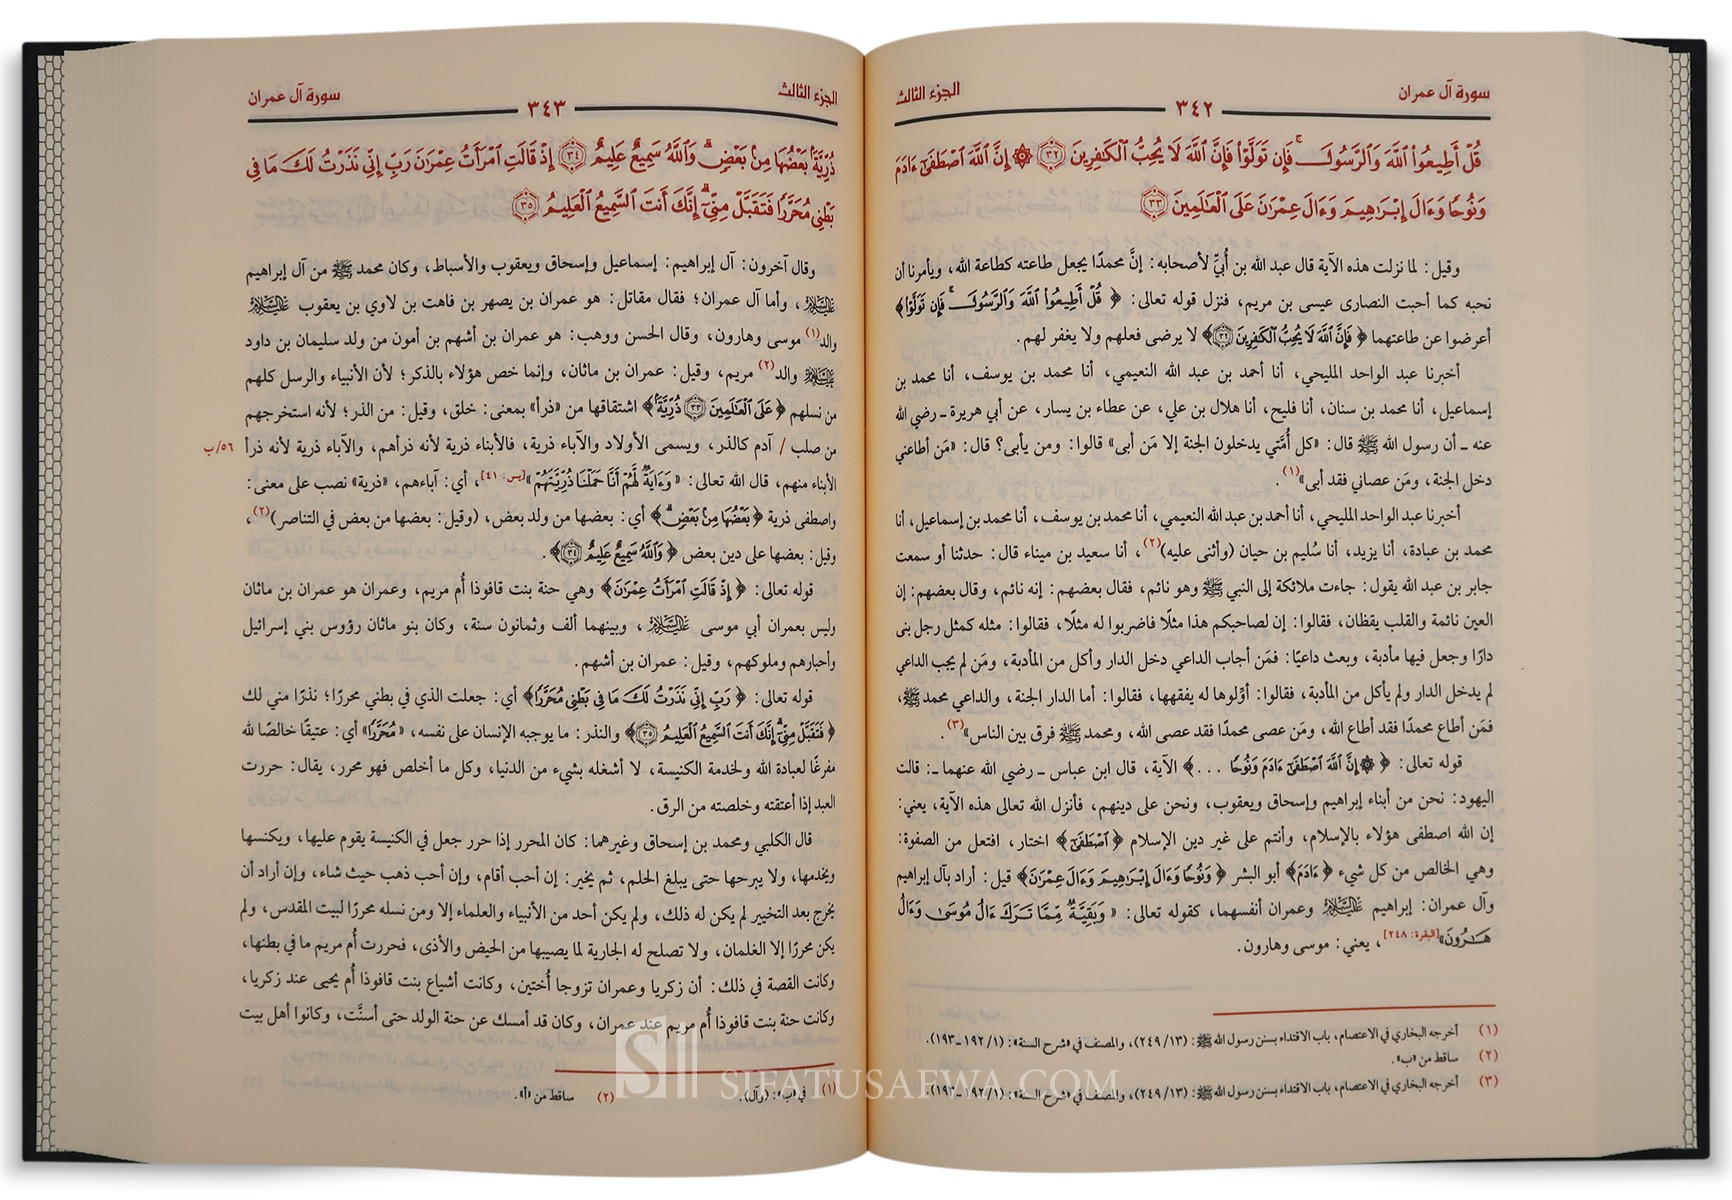 سورة آل عمران
٣٤٢
الجزء الثالث
قُلْ أَطِيعُوا۟ ٱللَّهَ وَٱلرَّسُولَ ۖ فَإِن تَوَلَّوْا۟ فَإِنَّ ٱللَّهَ لَا يُحِبُّ ٱلْكَٰفِرِينَ ٣٢ ۞ إِنَّ ٱللَّهَ ٱصْطَفَىٰٓ ءَادَمَ
وَنُوحًا وَءَالَ إِبْرَٰهِيمَ وَءَالَ عِمْرَٰنَ عَلَى ٱلْعَٰلَمِينَ ٣٣
وقيل: لما نزلت هذه الآية قال عبد الله بن أُبيٍّ لأصحابه: إنَّ محمدًا يجعل طاعته كطاعة الله، ويأمرنا أن
نحبه كما أحبت النصارى عيسى بن مريم، فنزل قوله تعالى: ﴿ قُلْ أَطِيعُوا۟ ٱللَّهَ وَٱلرَّسُولَ ۖ فَإِن تَوَلَّوْا۟ ﴾
أعرضوا عن طاعتهما ﴿ فَإِنَّ ٱللَّهَ لَا يُحِبُّ ٱلْكَٰفِرِينَ ٣٢ ﴾ لا يرضى فعلهم ولا يغفر لهم.
أخبرنا عبد الواحد المليحي، أنا أحمد بن عبد الله النعيمي، أنا محمد بن يوسف، أنا محمد بن
إسماعيل، أنا محمد بن سنان، أنا فليح، أنا هلال بن علي، عن عطاء بن يسار، عن أبي هريرة ـ رضي الله
عنه ـ أن رسول الله ﷺ قال: «كل أُمَّتي يدخلون الجنة إلا مَن أبى» قالوا: ومن يأبى؟ قال: «مَن أطاعني
دخل الجنة، ومَن عصاني فقد أبى»(١).
أخبرنا عبد الواحد المليحي، أنا أحمد بن عبد الله النعيمي، أنا محمد بن يوسف، أنا محمد بن إسماعيل، أنا
محمد بن عبادة، أنا يزيد، أنا سُليم بن حيان (وأثنى عليه)(٢)، أنا سعيد بن ميناء قال: حدثنا أو سمعت
جابر بن عبد الله يقول: جاءت ملائكة إلى النبي ﷺ وهو نائم، فقال بعضهم: إنه نائم، وقال بعضهم: إن
العين نائمة والقلب يقظان، فقالوا: إن لصاحبكم هذا مثلًا فاضربوا له مثلًا، فقالوا: مثله كمثل رجل بنى
دارًا وجعل فيها مأدبة، وبعث داعيًا: فمَن أجاب الداعي دخل الدار وأكل من المأدبة، ومَن لم يجب الداعي
لم يدخل الدار ولم يأكل من المأدبة، فقالوا: أوِّلوها له يفقهها، فقالوا: أما الدار الجنة، والداعي محمد ﷺ،
فمَن أطاع محمدًا فقد أطاع الله، ومَن عصى محمدًا فقد عصى الله، ومحمد ﷺ فرق بين الناس»(٣).
قوله تعالى: ﴿ ۞ إِنَّ ٱللَّهَ ٱصْطَفَىٰٓ ءَادَمَ وَنُوحًا ... ﴾ الآية، قال ابن عباس ـ رضي الله عنهما ـ: قالت
اليهود: نحن من أبناء إبراهيم وإسحاق ويعقوب، ونحن على دينهم، فأنزل الله تعالى هذه الآية، يعني:
إن الله اصطفى هؤلاء بالإسلام، وأنتم على غير دين الإسلام ﴿ ٱصْطَفَىٰٓ ﴾ اختار، افتعل من الصفوة:
وهي الخالص من كل شيء ﴿ ءَادَمَ ﴾ أبو البشر ﴿ وَنُوحًا وَءَالَ إِبْرَٰهِيمَ وَءَالَ عِمْرَٰنَ ﴾ قيل: أراد بآل إبراهيم
وآل عمران: إبراهيم عليه السلام وعمران أنفسهما، كقوله تعالى: « وَبَقِيَّةٌ مِّمَّا تَرَكَ ءَالُ مُوسَىٰ وَءَالُ
هَٰرُونَ»[البقرة: ٢٤٨]، يعني: موسى وهارون.
(١) أخرجه البخاري في الاعتصام، باب الاقتداء بسنن رسول الله ﷺ: (٢٤٩/١٣)، والمصنف في «شرح السنة»: (١/ ١٩٢ـ١٩٣).
(٢) ساقط من «ب».
(٣) أخرجه البخاري في الاعتصام، باب الاقتداء بسنن رسول الله ﷺ: (٢٤٩/١٣)، والمصنف في «شرح السنة»: (١/ ١٩٢ـ١٩٣).
الجزء الثالث
٣٤٣
سورة آل عمران
ذُرِّيَّةًۢ بَعْضُهَا مِنۢ بَعْضٍ ۗ وَٱللَّهُ سَمِيعٌ عَلِيمٌ ٣٤ إِذْ قَالَتِ ٱمْرَأَتُ عِمْرَٰنَ رَبِّ إِنِّى نَذَرْتُ لَكَ مَا فِى
بَطْنِى مُحَرَّرًا فَتَقَبَّلْ مِنِّىٓ ۖ إِنَّكَ أَنتَ ٱلسَّمِيعُ ٱلْعَلِيمُ ٣٥
وقال آخرون: آل إبراهيم: إسماعيل وإسحاق ويعقوب والأسباط، وكان محمد ﷺ من آل إبراهيم
عليه السلام، وأما آل عمران؛ فقال مقاتل: هو عمران بن يصهر بن فاهت بن لاوي بن يعقوب عليه السلام
والد(١) موسى وهارون، وقال الحسن ووهب: هو عمران بن أشهم بن أمون من ولد سليمان بن داود
عليهما السلام والد(٢) مريم، وقيل: عمران بن ماثان، وإنما خص هؤلاء بالذكر؛ لأن الأنبياء والرسل كلهم
من نسلهم ﴿ عَلَى ٱلْعَٰلَمِينَ ٣٣ ذُرِّيَّةًۢ ﴾ اشتقاقها من «ذرأ» بمعنى: خلق، وقيل: من الذر؛ لأنه استخرجهم
من صلب / آدم كالذر، ويسمى الأولاد والآباء ذرية، فالأبناء ذرية لأنه ذرأهم، والآباء ذرية لأنه ذرأ
٥٦/ب
الأبناء منهم، قال الله تعالى: « وَءَايَةٌ لَّهُمْ أَنَّا حَمَلْنَا ذُرِّيَّتَهُمْ»[يس: ٤١]، أي: آباءهم، «ذرية» نصب على معنى:
واصطفى ذرية ﴿ بَعْضُهَا مِنۢ بَعْضٍ ﴾ أي: بعضها من ولد بعض، (وقيل: بعضها من بعض في التناصر)(٢)،
وقيل: بعضها على دين بعض ﴿ وَٱللَّهُ سَمِيعٌ عَلِيمٌ ٣٤ ﴾.
قوله تعالى: ﴿ إِذْ قَالَتِ ٱمْرَأَتُ عِمْرَٰنَ ﴾ وهي حنة بنت قافوذا أُم مريم، وعمران هو عمران بن ماثان
وليس بعمران أبي موسى عليه السلام، وبينهما ألف وثمانون سنة، وكان بنو ماثان رؤوس بني إسرائيل
وأحبارهم وملوكهم، وقيل: عمران بن أشهم.
قوله تعالى: ﴿ رَبِّ إِنِّى نَذَرْتُ لَكَ مَا فِى بَطْنِى مُحَرَّرًا ﴾ أي: جعلت الذي في بطني محررًا؛ نذرًا مني لك
﴿ فَتَقَبَّلْ مِنِّىٓ ۖ إِنَّكَ أَنتَ ٱلسَّمِيعُ ٱلْعَلِيمُ ٣٥ ﴾ والنذر: ما يوجبه الإنسان على نفسه، «مُحَرَّرًا» أي: عتيقًا خالصًا لله
مفرغًا لعبادة الله ولخدمة الكنيسة، لا أشغله بشيء من الدنيا، وكل ما أخلص فهو محرر، يقال: حررت
العبد إذا أعتقته وخلصته من الرق.
قال الكلبي ومحمد بن إسحاق وغيرهما: كان المحرر إذا حرر جعل في الكنيسة يقوم عليها، ويكنسها
ويخدمها، ولا يبرحها حتى يبلغ الحلم، ثم يخير: إن أحب أقام، وإن أحب ذهب حيث شاء، وإن أراد أن
يخرج بعد التخيير لم يكن له ذلك، ولم يكن أحد من الأنبياء والعلماء إلا ومن نسله محررًا لبيت المقدس، ولم
يكن محررًا إلا الغلمان، ولا تصلح له الجارية لما يصيبها من الحيض والأذى، فحررت أُم مريم ما في بطنها،
وكانت القصة في ذلك: أن زكريا وعمران تزوجا أُختين، وكانت أشياع بنت قافوذا أُم يحيى عند زكريا،
وكانت حنة بنت قافوذا أُم مريم عند عمران، وكان قد أمسك عن حنة الولد حتى أسنَّت، وكانوا أهل بيت
(١) في «ب»: (وآل). (٢) ساقط من «أ».
SIFATUSAFWA.COM